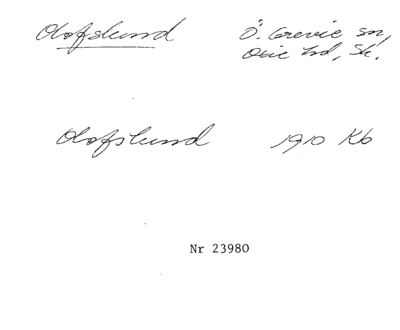 Olofslund Ö. Grevie sn,
Oxie hd, Sk.
Olofslund 1910 Kb
Nr 23980